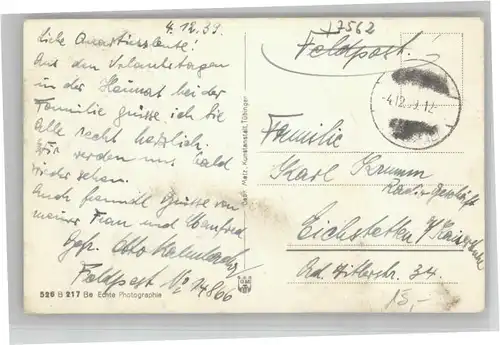 4.12.39.
Liebe Quartiersleute!
Aus den Urlaubstagen
in der Heimat bei der
Familie grüsse ich Sie
alle recht herzlich.
Wir werden uns bald
wieder sehen.
Auch freundl. Grüsse von
meiner Frau und Manfred
Gefr. Otto
Feldpost No 14866
526 B 217 Be Echte Photographie
Gebr. Metz, Kunstanstalt, Tübingen
17562
Feldpost.
Familie
Karl Krumm
Radio Geschäft
Eichstetten a/Kaiserstuhl
Ad. Hitlerstr. 34.
15,-